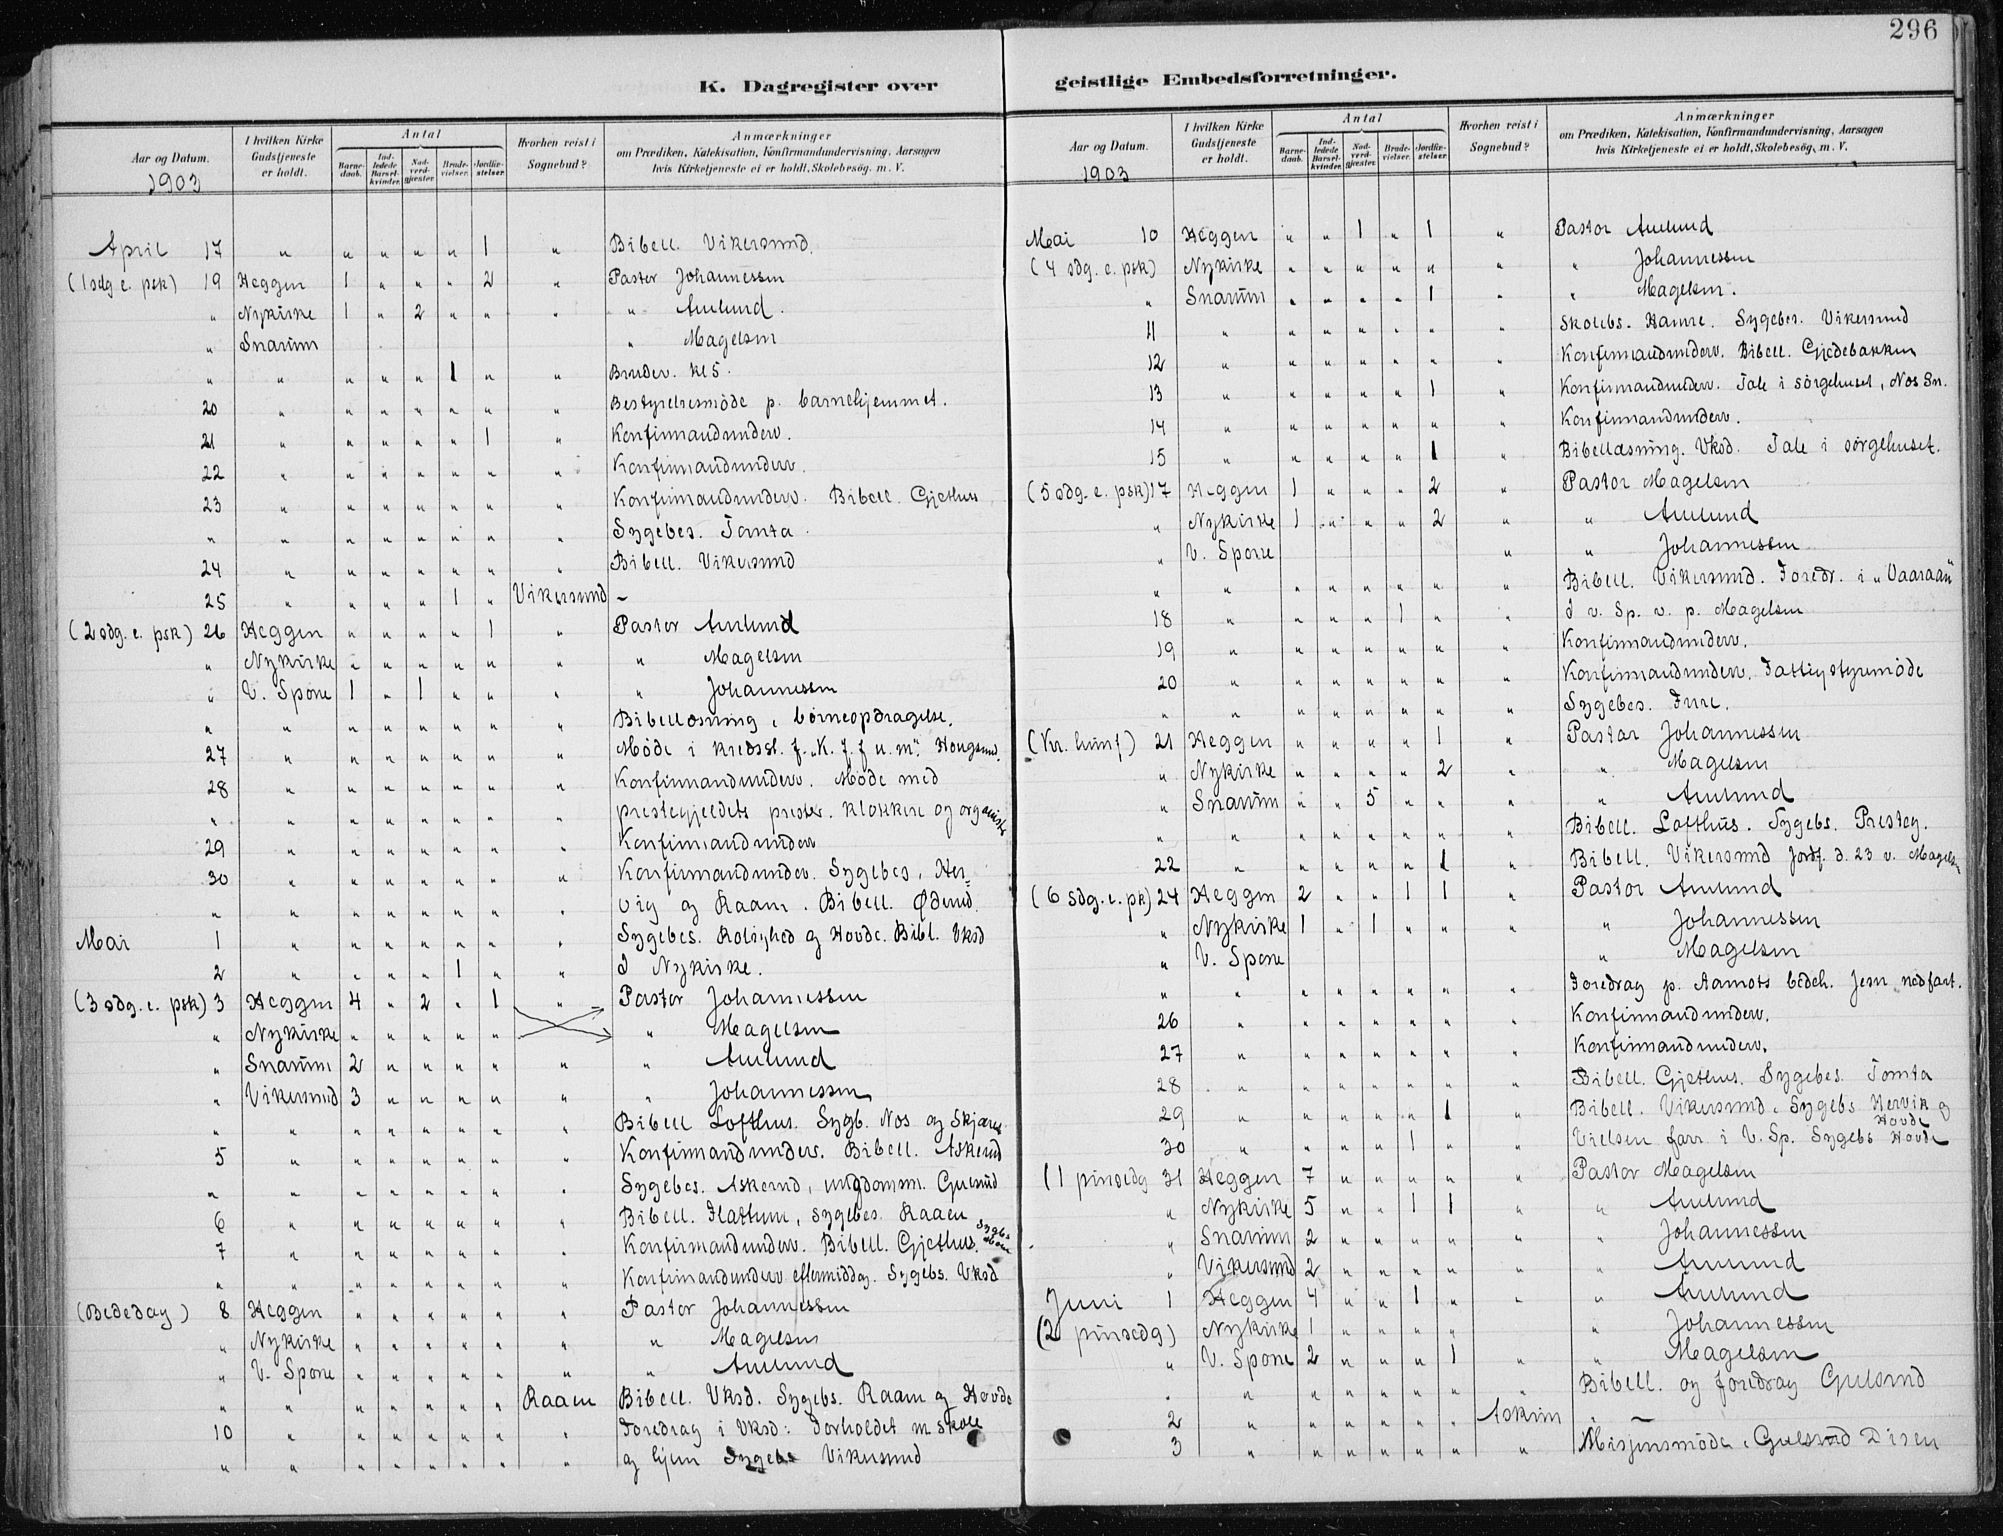 296
K. Dagregister over
Aar og Datum.
1903
I hvilken Kirke Gudstjeneste er holdt.
Antal
Barne-daab.
Ind-ledede Barsel-kvinder.
Nad-verd-gjæster.
Brude-vielser.
Jordfæ-stelser.
Hvorhen reist i Sognebud?
Anmærkninger
om Prædiken, Katekisation, Konfirmandundervisning, Aarsagen
hvis Kirketjeneste ei er holdt, Skolebesøg, m. V.
April 17 " " " " " 1 " Bibell. Vikersund.
(1 sdg e. psk) 19 Heggen 1 " " " 2 " Pastor Johannessen
" Nykirke 1 " 2 " " " " Amlund.
" Snarum " Magelsen
" " " " " 1 " " Brudev. kl 5.
20 " " " " " " " Bestyrelsesmöde p. barnehjemmet.
21 " " " " " 1 " Konfirmandunderv.
22 " " " " " " " Konfirmandunderv.
23 " " " " " " " Konfirmandunderv. Bibell. Gjethus
" " " " " " " " Sygebes. Tomta.
24 " " " " " " " Bibell. Vikersund
25 " " " " 1 " Vikersund –
(2 sdg. e. psk) 26 Heggen " " " " 1 " Pastor Amlund
" Nykirke " " " " " " " Magelsen
" V. Spone 1 " 1 " " " " Johannessen
" " " " " " " " Bibellæsning, börneopdragelse.
27 " " " " " " " Möde i kredsst. f. "K. f. f u. m". Hougsund.
28 " " " " " " " Konfirmandunderv. Möde med
" " " " " " " " prestegjeldets prester. klokkere og organister
29 " " " " " " " Konfirmandunderv
30 " " " " " " " Konfirmandunder. Sygebes, Her=
" " " " " " " " vig og Raaen. Bibell. Øderud.
Mai 1 " " " " " " " Sygebes. Rolighed og Hovde. Bibl. Vksd
2 " " " " 1 " " I Nykirke.
(3 sdg. e. psk) 3 Heggen 4 " 2 " 1 " Pastor Johannessen
" Nykirke " " " " " " Magelsen
" Snarum 2 " " " " " " Amlund
" Vikersund 3 " " " " " " Johannessen
" " " " " " " " Bibell Lofthus. Sygb. Nos og
5 " " " " " " " Konfirmandunderv. Bibell. Askerud
" " " " " " " " Sygebes. Askerud, ungdomsm. Gulsrud
6 " " " " " " " Bibell. Flattum, Sygebes. Raaen
7 " " " " " " " Konfirmandunderv. Bibell. Gjethus. Sygbs
" " " " " " " " Konfirmandunderv eftermiddag. Sygebs. Vksd
(Bededag) 8 Heggen " " " " " " Pastor Johannessen
" Nykirke " " " " " " " Magelsen
" V. Spone " " " " " " " Amlund
" " " " " " " Raaen Bibell. Vksd. Sygebs. Raaen og Hovde
10 " " " " " " " Foredrag i Vksd: Forholdet m skole
" " " " " " " " og hjem Sygebs Vikersund
geistlige Embedsforretninger.
Aar og Datum.
1903
I hvilken Kirke Gudstjeneste er holdt.
Antal
Barne-daab.
Ind-ledede Barsel-kvinder.
Nad-verd-gjæster.
Brude-vielser.
Jordfæ-stelser.
Hvorhen reist i Sognebud?
Anmærkninger
om Prædiken, Katekisation, Konfirmandundervisning, Aarsagen
hvis Kirketjeneste ei er holdt, Skolebesøg, m. V.
Mai 10 Heggen " " 1 " 1 " Pastor Amlund
(4 sdg. e. psk) Nykirke " " " " " " " Johannessen
" Snarum " " " " 1 " " Magelsen.
11 " " " " " " " Skolebs. Hamre. Sygebes. Vikersund
12 " " " " " " " Konfirmandunderv. Bibell. Gjedebakken
13 " " " " " 1 " Konfirmandunderv. Tale i sörgehuset, Nos Sn.
14 " " " " " " " Konfirmandunderv.
15 " " " " " 1 " Bibellæsning. Vksd. Tale i sörgehuset.
(5 sdg. e. psk) 17 Heggen 1 " " " 2 " Pastor Magelsen
" Nykirke 1 " " " 2 " " Amlund
" V. Spone " " Johannessen
" " " " " " " " Bibell. Vikersund. Foredr. i "Vaaraan"
18 " " " " 1 " " I v. Sp. v. p. Magelsen
19 " " " " " " " Konfirmandunderv.
20 " " " " " " " Konfirmandunderv. Fattigstyremöde
" " " " " " " " Sygebes. Fure.
(Kr. himf) 21 Heggen " " " " 1 " Pastor Johannessen
" Nykirke " " " " 2 " " Magelsen
" Snarum " " 5 " " " " Amlund
" " " " " " " " Bibell. Lofthus. Sygebs. Presteg.
22 " " " " " 1 " Bibell. Vikersund Jordf. d. 23 v. Magelsen
(6 sdg. e. pk) 24 Heggen 2 " " 1 1 " Pastor Amlund
" Nykirke 1 " 1 " " " " Johannessen
" V. Spone " Magelsen
" " " " " " " " Foredrag p. Aamots bedeh. Jesu nedfart.
26 " " " " " " " Konfirmandunderv.
27 " " " " " " " Konfirmandunderv.
28 " " " " " " " Bibell. Gjethus. Sygebes. Tomta
29 " " " " " 1 " Bibell. Vikersund. Sygebs Hervik og Hovde
30 " " " " 1 " " Vielsen forr. i V. Sp. Sygebs Hovde
(1 pinsedg 31 Heggen 7 " " " " " Pastor Magelsen
" Nykirke 5 " " 1 1 " " Amlund
" Snarum 2 " " " " " " Johannessen
" Vikersund 2 " " " " " " Amlund
Juni 1 Heggen 4 " " 1 " " " Amlund
(2 pinsedg) Nykirke 1 " " " " " Johannessen
" V. Spone 2 " " " 1 " " Magelsen
" " " " " " " " Bibell. og foredrag Gulsrud
2 " " " " " " Askim " –
3 " " " " " " " Misjonsmöde, Gulsrud Disen